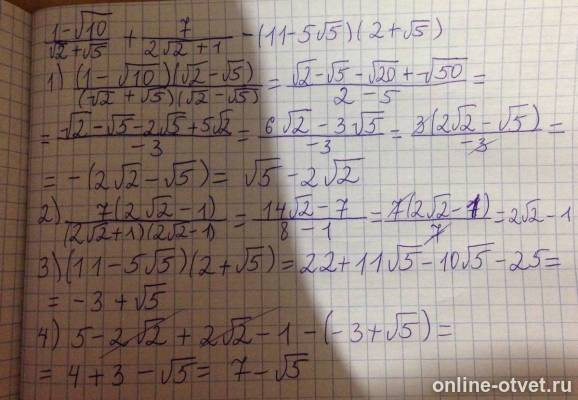 (1-√10)/(√2+√5) + 7/(2√2+1) - (11-5√5)(2+√5)
1) (1-√10)(√2-√5)/((√2+√5)(√2-√5)) = (√2-√5-√20+√50)/(2-5) =
= (√2-√5-2√5+5√2)/(-3) = (6√2-3√5)/(-3) = 3(2√2-√5)/(-3) =
= -(2√2-√5) = √5-2√2
2) 7(2√2-1)/((2√2+1)(2√2-1)) = (14√2-7)/(8-1) = 7(2√2-1)/7 = 2√2-1
3) (11-5√5)(2+√5) = 22+11√5-10√5-25 =
= -3+√5
4) 5-2√2+2√2-1-(-3+√5) =
= 4+3-√5 = 7-√5
online-otvet.ru